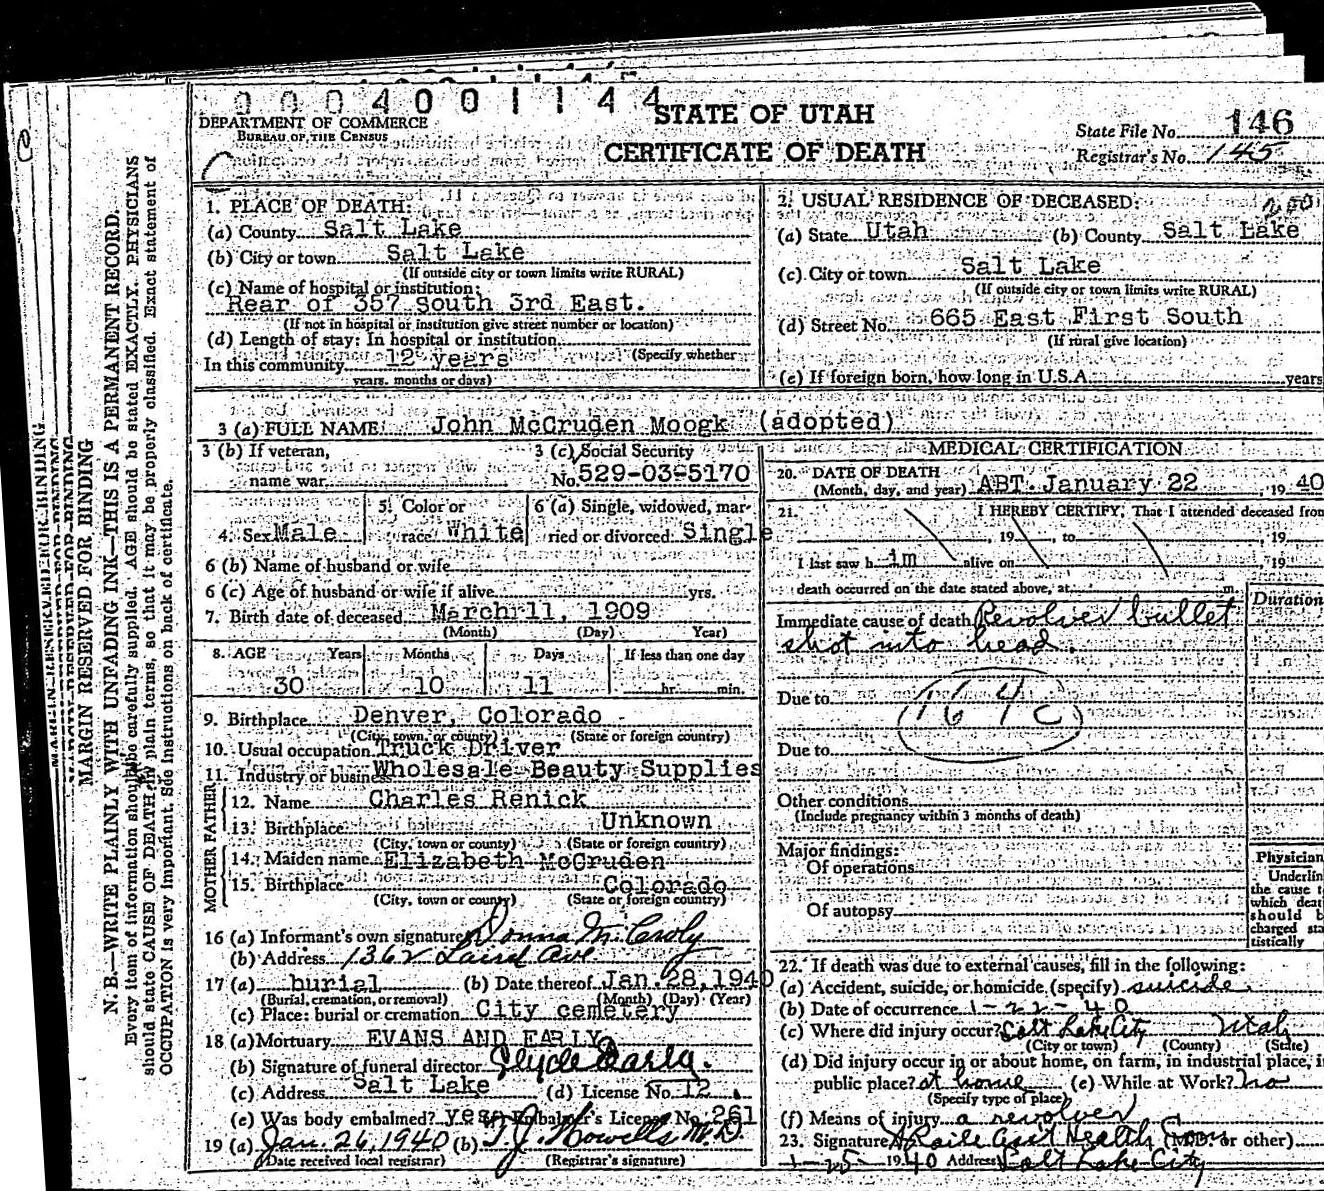 0 0 0 4 0 0 1 1 4 4
DEPARTMENT OF COMMERCE
BUREAU OF THE CENSUS
STATE OF UTAH
CERTIFICATE OF DEATH
State File No. 146
Registrar's No. 145
1. PLACE OF DEATH:
(a) County Salt Lake
(b) City or town Salt Lake
(If outside city or town limits write RURAL)
(c) Name of hospital or institution:
Rear of 357 South 3rd East.
(If not in hospital or institution give street number or location)
(d) Length of stay: In hospital or institution
(Specify whether
In this community 12 years
years, months or days)
2. USUAL RESIDENCE OF DECEASED:
(a) State Utah (b) County Salt Lake
(c) City or town Salt Lake
(If outside city or town limits write RURAL)
(d) Street No. 665 East First South
(If rural give location)
(e) If foreign born, how long in U.S.A. years
3 (a) FULL NAME John McCruden Moogk (adopted)
3 (b) If veteran,
name war
3 (c) Social Security
No. 529-03-5170
4. Sex Male
5. Color or
race White
6 (a) Single, widowed, mar-
ried or divorced Single
6 (b) Name of husband or wife
6 (c) Age of husband or wife if alive yrs.
7. Birth date of deceased March 11, 1909
(Month) (Day) Year)
8. AGE Years Months Days If less than one day
30 10 11 hr. min.
9. Birthplace Denver, Colorado
(City, town, or county) (State or foreign country)
10. Usual occupation Truck Driver
11. Industry or business Wholesale Beauty Supplies
FATHER
12. Name Charles Renick
13. Birthplace Unknown
(City, town or county) (State or foreign country)
MOTHER
14. Maiden name Elizabeth McCruden
15. Birthplace Colorado
(City, town or county) (State or foreign country)
16 (a) Informant's own signature Donna M. Croly
(b) Address 1362 Laird Ave
17 (a) burial (b) Date thereof Jan. 28, 1940
(Burial, cremation, or removal) (Month) (Day) (Year)
(c) Place: burial or cremation City cemetery
18 (a) Mortuary EVANS AND EARLY
(b) Signature of funeral director Clyde Early.
(c) Address Salt Lake (d) License No. 12
(e) Was body embalmed? yes Embalmer's License No. 261
19 (a) Jan. 26, 1940 (b) T. J. Howells M.D.
(Date received local registrar) (Registrar's signature)
MEDICAL CERTIFICATION
20. DATE OF DEATH
(Month, day, and year) ABT. January 22, 19 40
21. I HEREBY CERTIFY, That I attended deceased from
, 19 , to , 19
I last saw h im alive on , 19
death occurred on the date stated above, at m.
Duration
Immediate cause of death Revolver bullet
shot into head.
Due to
164C
Due to
Other conditions
(Include pregnancy within 3 months of death)
Major findings:
Of operations
Of autopsy
Physician
Underlin
the cause t
which deat
should b
charged sta
tistically
22. If death was due to external causes, fill in the following:
(a) Accident, suicide, or homicide (specify) suicide
(b) Date of occurrence 1-22-40
(c) Where did injury occur? Salt Lake City Utah
(City or town) (County) (State)
(d) Did injury occur in or about home, on farm, in industrial place, i
public place? at home (e) While at Work? no
(Specify type of place)
(f) Means of injury a revolver
23. Signature Asst Health Com (M.D. or other)
1-25 19 40 Address Salt Lake City
MARGIN RESERVED FOR BINDING
N. B.—WRITE PLAINLY WITH UNFADING INK—THIS IS A PERMANENT RECORD.
Every item of information should be carefully supplied. AGE should be stated EXACTLY. PHYSICIANS
should state CAUSE OF DEATH in plain terms, so that it may be properly classified. Exact statement of
OCCUPATION is very important. See instructions on back of certificate.